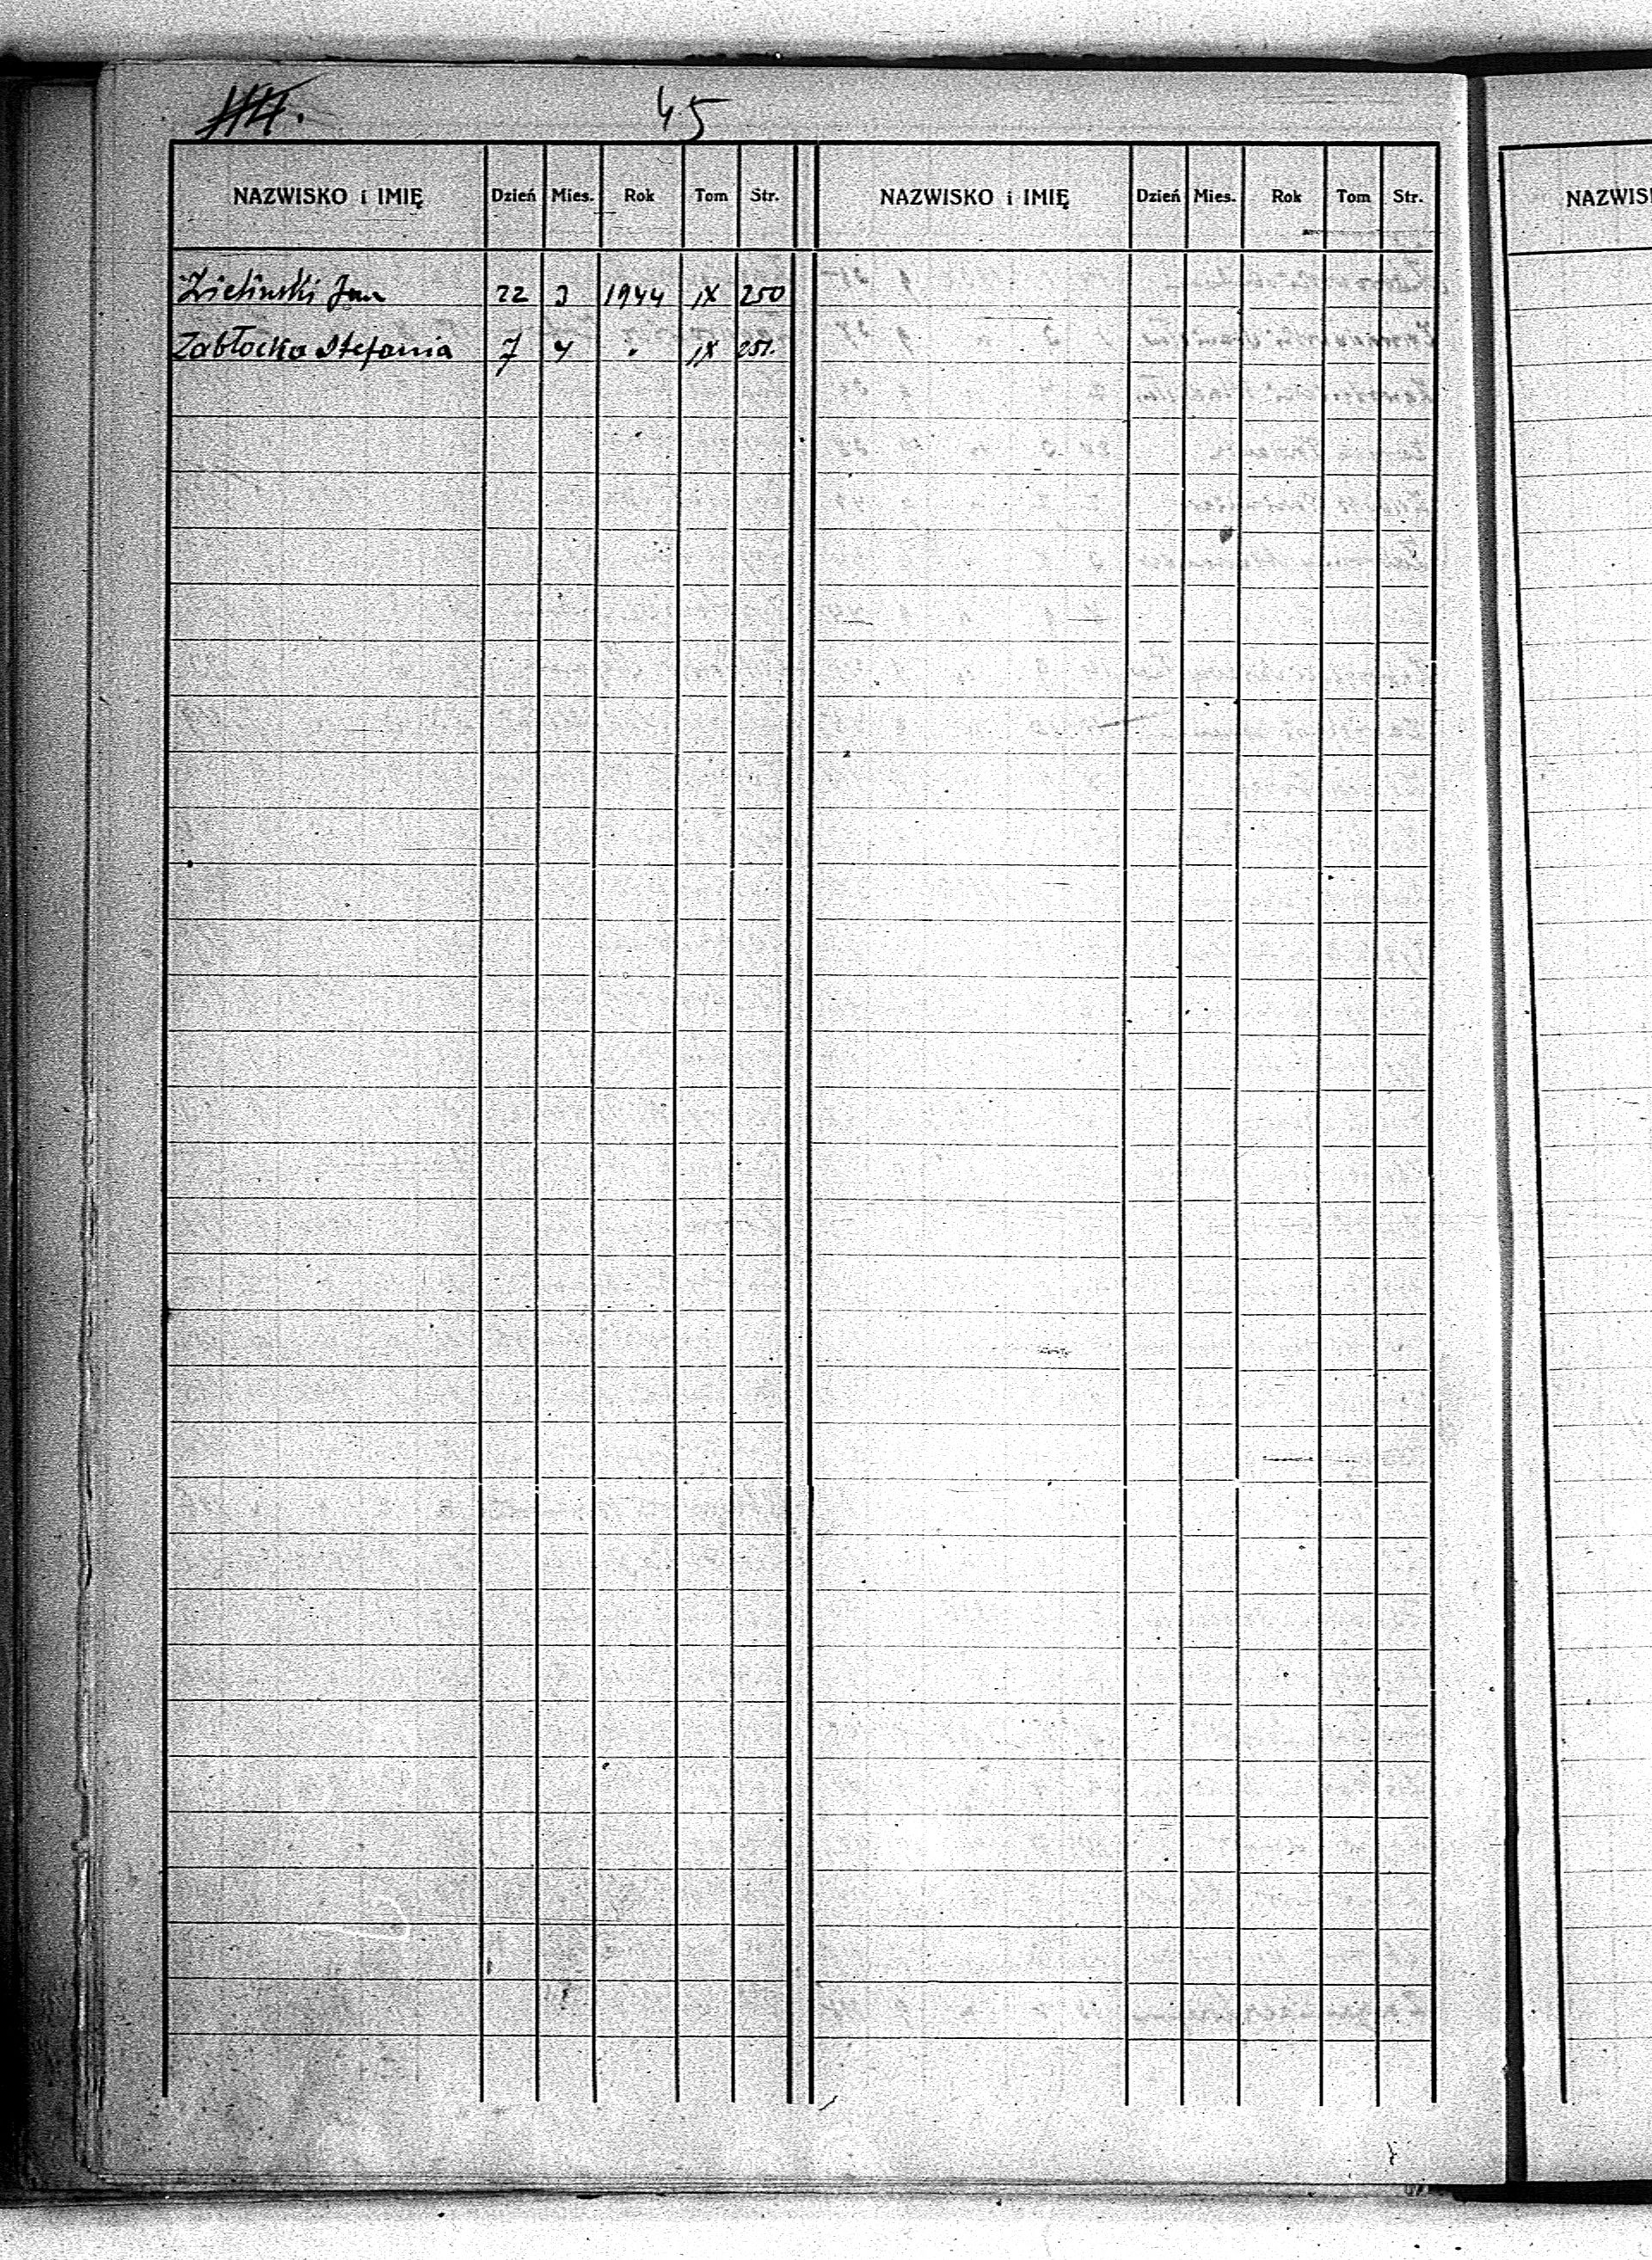 45
NAZWISKO i IMIĘ Dzień Mies. Rok Tom Str. NAZWISKO i IMIĘ Dzień Mies. Rok Tom Str. NAZWIS
Zieliński Jan 22 3 1944 IX 250
Zabłocka Stefania 7 4 . IX 251.